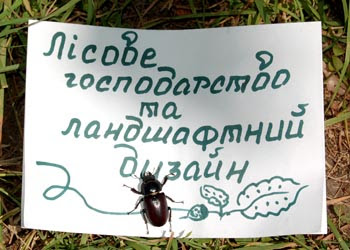 Лісове
господарство
та
ландшафтний
дизайн